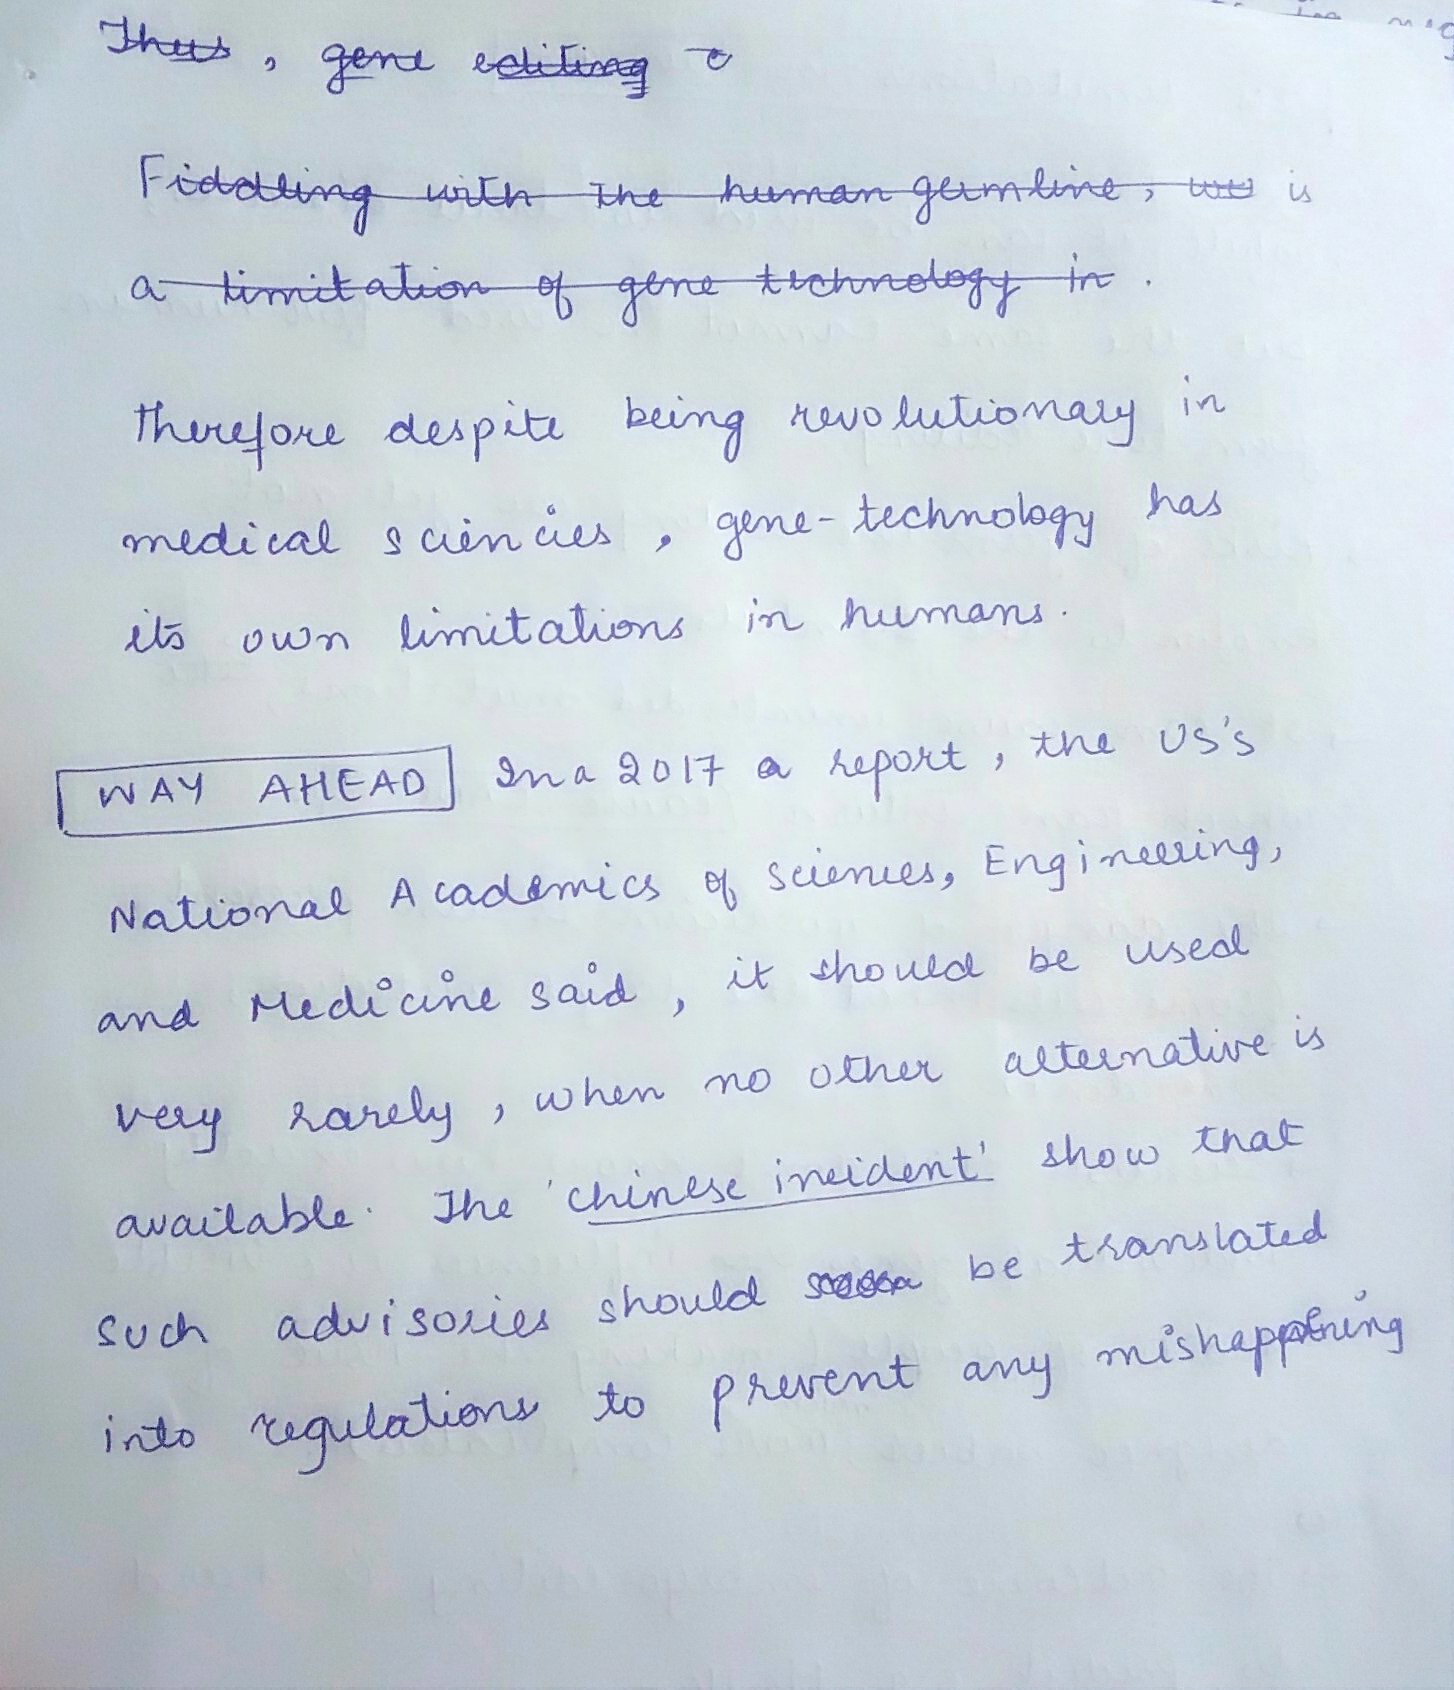 Thus, gene editing
Fiddling with the human germline, is
a limitation of gene technology in.
Therefore despite being revolutionary in
medical sciencies, gene-technology has
its own limitations in humans.
WAY AHEAD In a 2017 a report, the US's
National Academics of Sciences, Engineering,
and Medicine said, it should be used
very rarely, when no other alternative is
available. The 'chinese incident' show that
such advisories should be translated
into regulations to prevent any mishappening